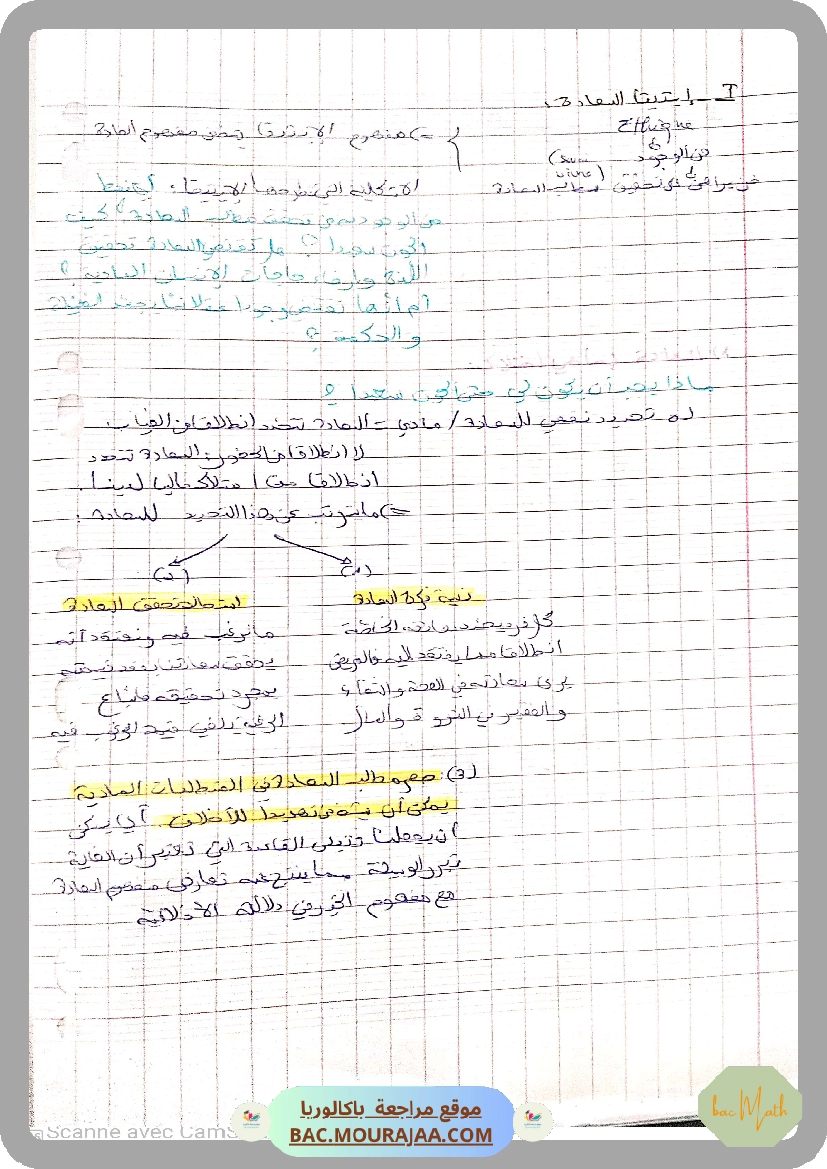 I - إيتيقا السعادة:
Ethique
فن الوجود
=> مفهوم الإيتيقا يحضر مفهوم السعادة
الإشكالية التي تطرحها الإيتيقا: أي نمط
من الوجود يمكن تحقيق مطلب السعادة؟ كيف
أكون سعيدا؟ هل تقتضي السعادة تحقيق
اللذة وإرضاء حاجات الإنسان المادية؟
أم أنها تقتضي وجودا عقلانيا يجسد الفضيلة
والحكمة؟
ماذا يجب أن يكون لي حتى أكون سعيدا؟
تحديد نفعي للسعادة / مادي = السعادة تتحدد انطلاقا من الغياب
لا انطلاقا من الحضور: السعادة تتحدد
انطلاقا من امتلاك ما ليس لدينا.
=> ما يترتب عن هذا التحديد للسعادة:
(1) (2)
نسبية فكرة السعادة
كل فرد يحدد سعادته الخاصة
انطلاقا مما يفتقد إليه فالمريض
يرى سعادته في الصحة والشفاء
والفقير في الثروة والمال
استحالة تحقق السعادة
ما نرغب فيه ونعتقد أنه
يحقق سعادتنا يفقد قيمته
بمجرد تحقيقه فإشباع
الرغبة يلغي قيمة المرغوب فيه
(3): حصر مطلب السعادة في المتطلبات المادية
يمكن أن يشكل تهديدا للأخلاق، أي يمكن
أن يجعلنا نتبنى القاعدة التي تعتبر أن الغاية
تبرر الوسيلة مما ينتج عنه تعارض مفهوم السعادة
مع مفهوم الخير في دلالته الأخلاقية
Scanne avec CamS
موقع مراجعة باكالوريا
BAC.MOURAJAA.COM
bac Math